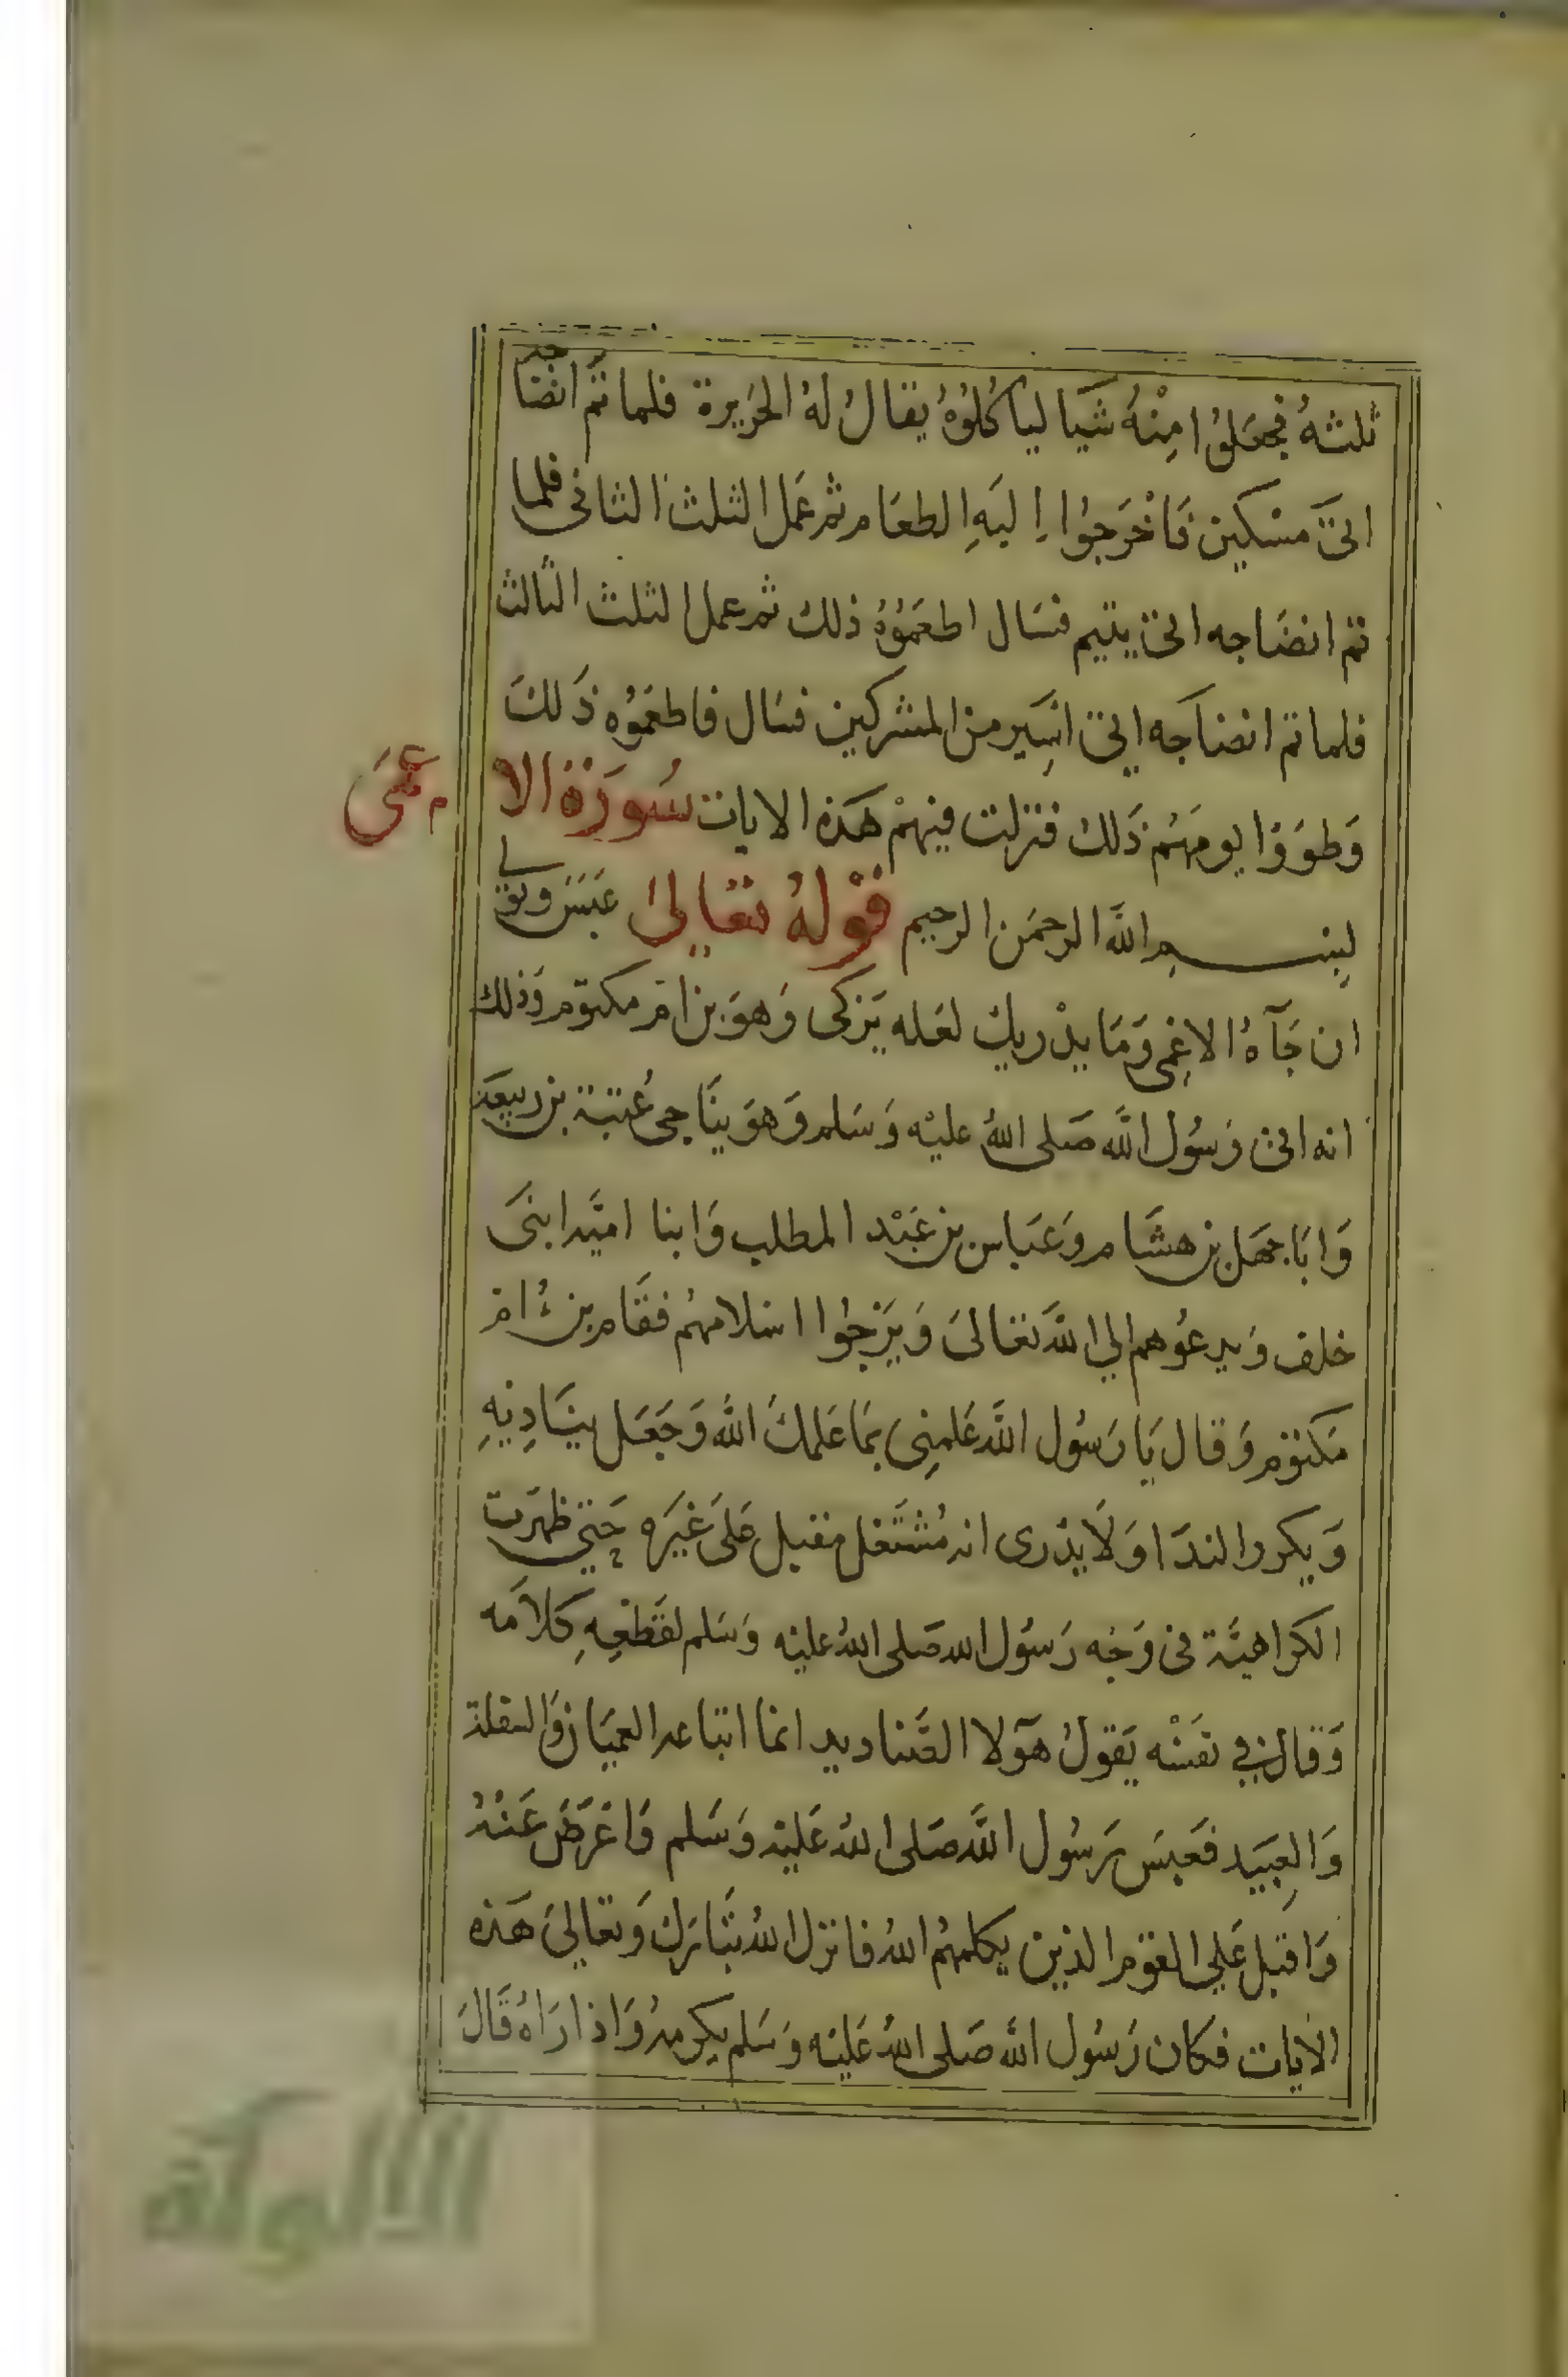 ثلثهُ فجعَلوُا مِنْهُ شَيَا ليا كُلوُهُ يقالُ لهُ الحَرِيرة فلما تمَّ انضا جه
اتىَ مسْكين فَاخْرَجوُا اِليَهِ الطعَام ثم عَمل الثلث الثانى فلما
تم انضَاجه اتى يتيم فسَال اطعَموُهُ ذلك ثم عمل الثلث الثالث
فلما تم انضاجَه اتى اسَير من المشركين فسَال فاطعَموُه ذَلكَ
وَطوَوْا يومَهُم ذَلك فنزلت فيهمْ هَذه الايات سُورَة الا عمَىَ
بسم اللَّه الرحمَن الرحيم قوْلهُ تعَالىَ عَبَسَ وتولى
ان جَآهُ الاعْمى وَمَا يدْريك لعَله يَزكى وَهوَ بن ام مكتوم وَذلك
انه اتى رَسُول اللَّه صَلى اللهُ عليْه وَسَلم وَهوَ ينَاجى عُتبة بن ربيعَة
وَابَا جهَل بن هشَام وعَبَاس بن عَبْد المطلب وَابنا اميَّه ابنىَ
خلف وَيدعُوهم الي اللَّه تعَالىَ وَيَرْجوُا اسْلامهُم فقَام بن ام
مَكتوْم وَقال يَا رَسُول اللَّه عَلمِنِى بمَا عَلمكَ اللَّه وَجَعَل ينَادِيْهِ
وَيكرر الندَا وَلَا يدْرى انه مُشتَغل مقبل عَلىَ غَيرَه حَتي ظهَرت
الكرَاهيَّة فى وَجْه رَسوُل الله صَلى اللهُ عليْه وَسَلم لقَطْعِهِ كِلاَمَه
وَقال في نفسْه يَقولُ هَوَلا الصَّناديد انما اتباعه العميَان وَالسفلة
وَالعِبيَد فعَبسَ رَسُول اللَّه صَلى اللهُ عَليْه وَسَلم وَاعْرَضَ عَنْهُ
وَاقبَل عَلي القوْم الذين يكلمهُم اللهُ فانزل اللهُ تبَارَك وَتعَاليَ هَذه
الايات فكان رَسُول اللَّه صَلى اللهُ عَليْه وَسَلم يكرمهُ وَاذا رَاهُ قَالَ
الألوكة